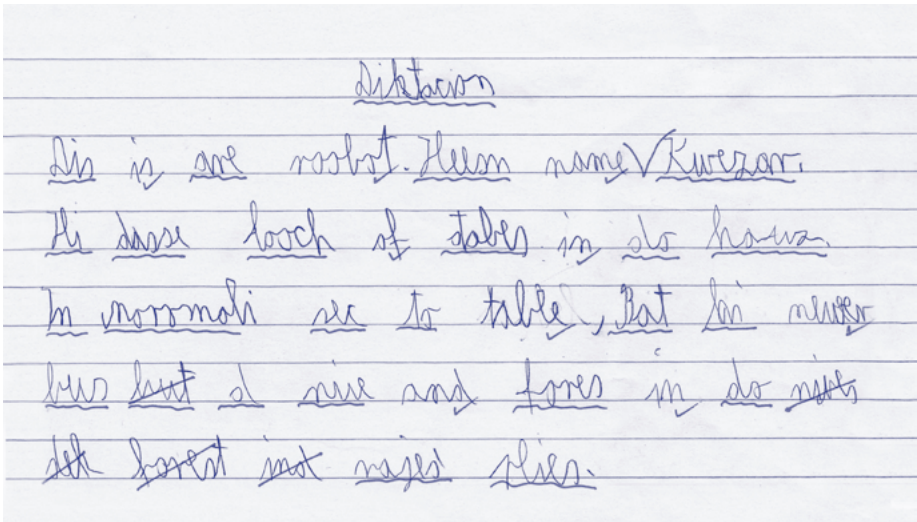 Diktacion
Dis is are roobot. Heem name Kwezar.
Hi dasse looch of tabes in do hous.
In norromali sec to table, Bat hi never
bus but d nive and fores in do
forest ind rajei plies.